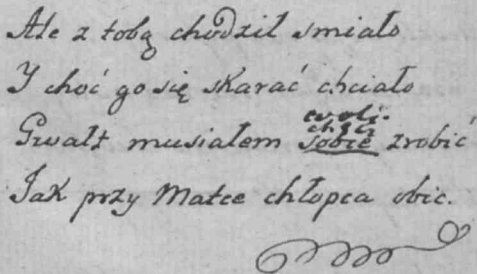 Ale z tobą chodził smiało
Y choć go się skarać chciało
woli.
chęci
Gwałt musiałem sobie zrobić
Jak przy Matce chłopca obic.